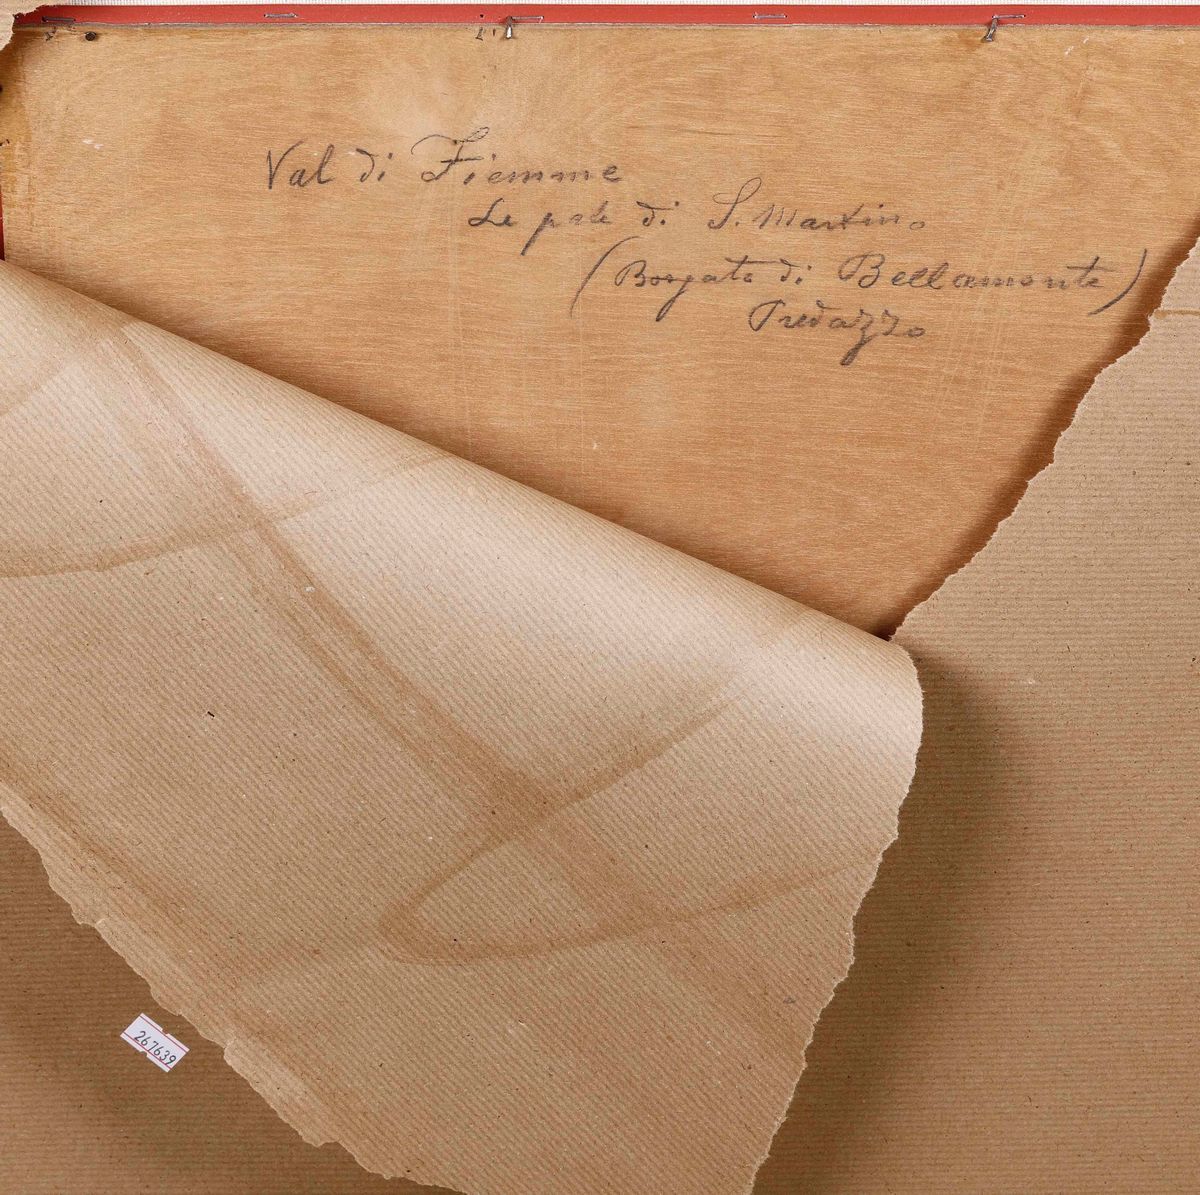 Val di Fiemme
Le pale di S. Martino
(Borgata di Bellamonte)
Predazzo
267639